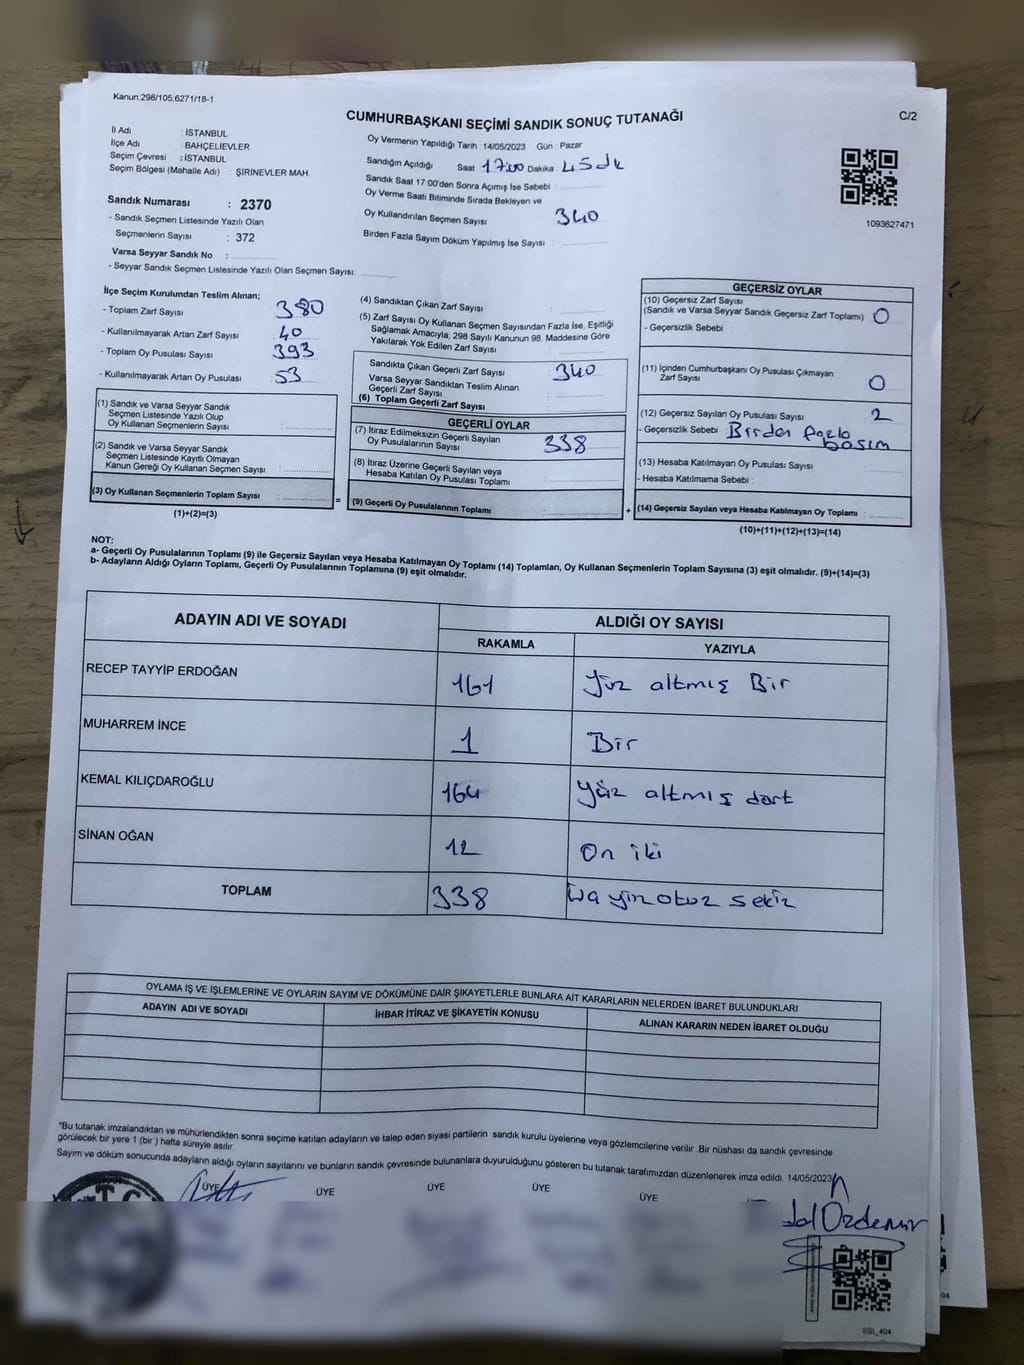 Kanun:298/105,6271/18-1
CUMHURBAŞKANI SEÇİMİ SANDIK SONUÇ TUTANAĞI
C/2
İl Adı : İSTANBUL
İlçe Adı : BAHÇELİEVLER
Seçim Çevresi : İSTANBUL
Seçim Bölgesi (Mahalle Adı) : ŞİRİNEVLER MAH.
Sandık Numarası : 2370
- Sandık Seçmen Listesinde Yazılı Olan
Seçmenlerin Sayısı : 372
Varsa Seyyar Sandık No :
- Seyyar Sandık Seçmen Listesinde Yazılı Olan Seçmen Sayısı:
Oy Vermenin Yapıldığı Tarih : 14/05/2023 Gün : Pazar
Sandığın Açıldığı Saat 17:00 Dakika 45dk
Sandık Saat 17:00'den Sonra Açımış İse Sebebi :
Oy Verme Saati Bitiminde Sırada Bekleyen ve
Oy Kullandırılan Seçmen Sayısı 340
Birden Fazla Sayım Döküm Yapılmış İse Sayısı :
1093627471
İlçe Seçim Kurulundan Teslim Alınan;
- Toplam Zarf Sayısı 380
- Kullanılmayarak Artan Zarf Sayısı 40
- Toplam Oy Pusulası Sayısı 393
- Kullanılmayarak Artan Oy Pusulası 53
(1) Sandık ve Varsa Seyyar Sandık
Seçmen Listesinde Yazılı Olup
Oy Kullanan Seçmenlerin Sayısı :
(2) Sandık ve Varsa Seyyar Sandık
Seçmen Listesinde Kayıtlı Olmayan
Kanun Gereği Oy Kullanan Seçmen Sayısı :
(3) Oy Kullanan Seçmenlerin Toplam Sayısı
(1)+(2)=(3)
=
(4) Sandıktan Çıkan Zarf Sayısı :
(5) Zarf Sayısı Oy Kullanan Seçmen Sayısından Fazla İse, Eşitliği
Sağlamak Amacıyla, 298 Sayılı Kanunun 98. Maddesine Göre
Yakılarak Yok Edilen Zarf Sayısı
Sandıkta Çıkan Geçerli Zarf Sayısı 340
Varsa Seyyar Sandıktan Teslim Alınan
Geçerli Zarf Sayısı
(6) Toplam Geçerli Zarf Sayısı
GEÇERLİ OYLAR
(7) İtiraz Edilmeksizin Geçerli Sayılan
Oy Pusulalarının Sayısı 338
(8) İtiraz Üzerine Geçerli Sayılan veya
Hesaba Katılan Oy Pusulası Toplamı
(9) Geçerli Oy Pusulalarının Toplamı
+
GEÇERSİZ OYLAR
(10) Geçersiz Zarf Sayısı
(Sandık ve Varsa Seyyar Sandık Geçersiz Zarf Toplamı) 0
- Geçersizlik Sebebi :
(11) İçinden Cumhurbaşkanı Oy Pusulası Çıkmayan
Zarf Sayısı 0
(12) Geçersiz Sayılan Oy Pusulası Sayısı 2
- Geçersizlik Sebebi Birden fazla
basım
(13) Hesaba Katılmayan Oy Pusulası Sayısı
- Hesaba Katılmama Sebebi :
(14) Geçersiz Sayılan veya Hesaba Katılmayan Oy Toplamı :
(10)+(11)+(12)+(13)=(14)
NOT:
a- Geçerli Oy Pusulalarının Toplamı (9) ile Geçersiz Sayılan veya Hesaba Katılmayan Oy Toplamı (14) Toplamları, Oy Kullanan Seçmenlerin Toplam Sayısına (3) eşit olmalıdır. (9)+(14)=(3)
b- Adayların Aldığı Oyların Toplamı, Geçerli Oy Pusulalarının Toplamına (9) eşit olmalıdır.
ADAYIN ADI VE SOYADI
ALDIĞI OY SAYISI
RAKAMLA YAZIYLA
RECEP TAYYİP ERDOĞAN 161 Yüz altmış Bir
MUHARREM İNCE 1 Bir
KEMAL KILIÇDAROĞLU 164 Yüz altmış dört
SİNAN OĞAN 12 On iki
TOPLAM 338 otuz sekiz
OYLAMA İŞ VE İŞLEMLERİNE VE OYLARIN SAYIM VE DÖKÜMÜNE DAİR ŞİKAYETLERLE BUNLARA AİT KARARLARIN NELERDEN İBARET BULUNDUKLARI
ADAYIN ADI VE SOYADI
İHBAR İTİRAZ VE ŞİKAYETİN KONUSU
ALINAN KARARIN NEDEN İBARET OLDUĞU
*Bu tutanak imzalandıktan ve mühürlendikten sonra seçime katılan adayların ve talep eden siyasi partilerin sandık kurulu üyelerine veya gözlemcilerine verilir. Bir nüshası da sandık çevresinde
görülecek bir yere 1 (bir ) hafta süreyle asılır.
Sayım ve döküm sonucunda adayların aldığı oyların sayılarını ve bunların sandık çevresinde bulunanlara duyurulduğunu gösteren bu tutanak tarafımızdan düzenlenerek imza edildi. 14/05/2023
T.C.
ÜYE ÜYE ÜYE ÜYE ÜYE
Özdemir
SSI_404